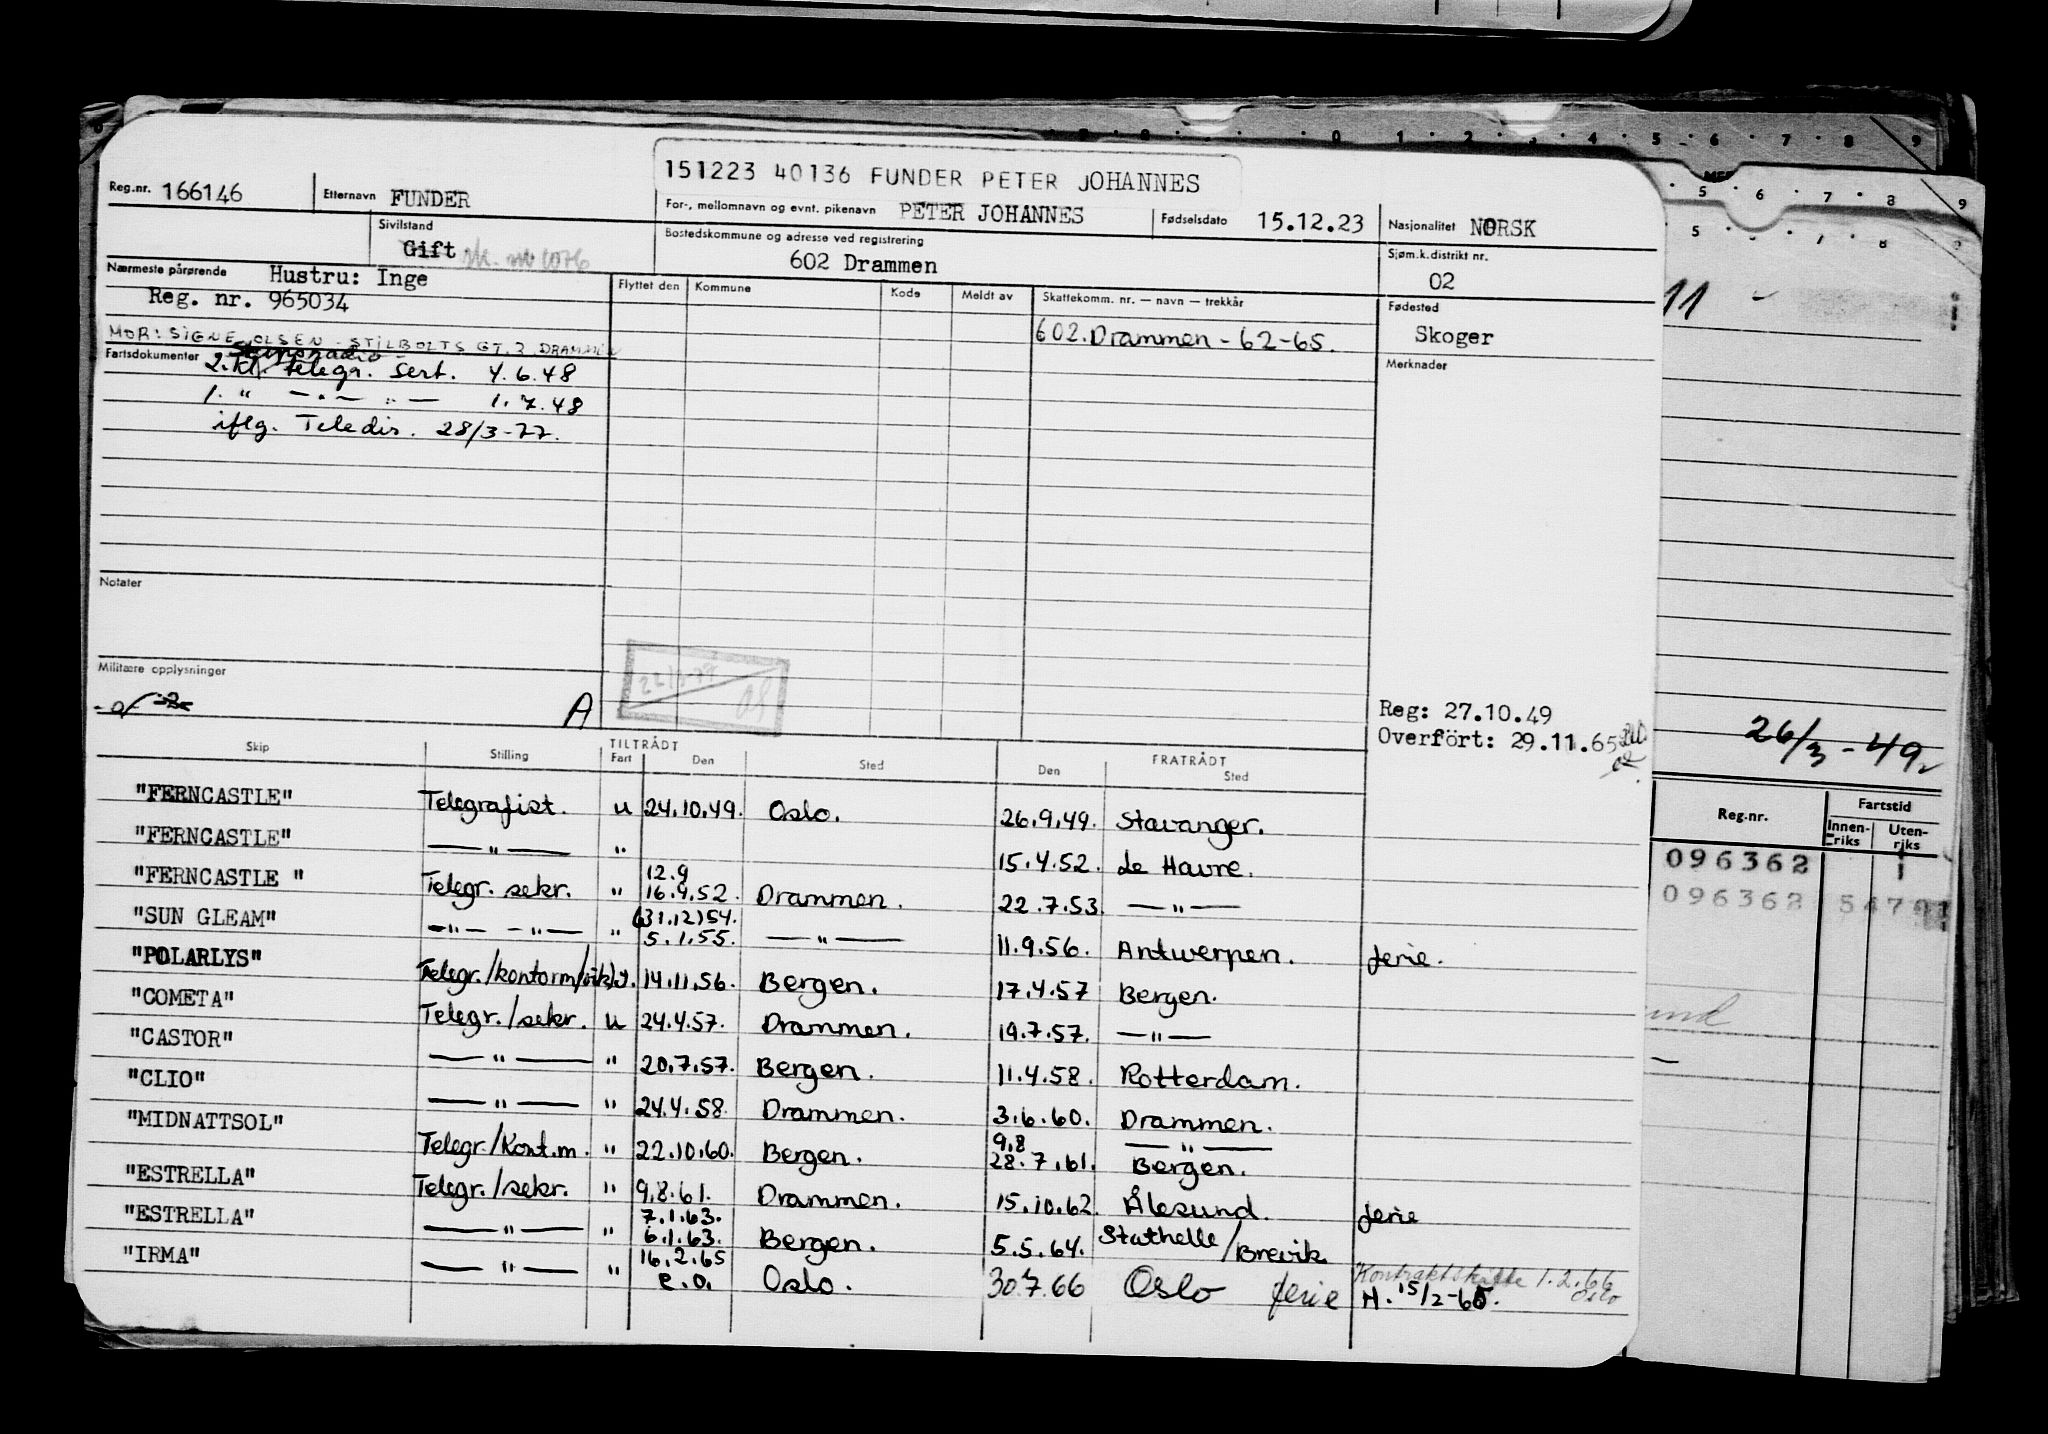 151223 40136 FUNDER PETER JOHANNES
Reg.nr. 166146 Etternavn FUNDER For-, mellomnavn og evnt. pikenavn PETER JOHANNES Fødselsdato 15.12.23 Nasjonalitet NORSK
Sivilstand Gift Bostedskommune og adresse ved registrering 602 Drammen Sjøm.k.distrikt nr. 02
Nærmeste pårørende Hustru: Inge
Reg. nr. 965034
MOR: SIGNE OLSEN - STILBOLTS GT. 2 DRAMMEN
Flyttet den Kommune Kode Meldt av Skattekomm. nr. — navn — trekkår
602. Drammen - 62-65.
Fødested
Skoger
Merknader
Fartsdokumenter
2. kl. telegr. sert. 4.6.48
1. " — " — " — 1.7.48
iflg. Teledir. 28/3-77.
Notater
Militære opplysninger
A
Reg: 27.10.49
Overfört: 29.11.65
Skip Stilling TILTRÅDT Fart Den Sted FRATRÅDT Den Sted
"FERNCASTLE" Telegrafist. u 24.10.49. Oslo. 26.9.49. Stavanger.
"FERNCASTLE" — " — " 15.4.52. Le Havre.
"FERNCASTLE " Telegr. sekr. " 12.9 16.4.52. Drammen. 22.7.53. — " —
"SUN GLEAM" — " — — " — " (31.12) 54. 5.1.55. — " — 11.9.56. Antwerpen. ferie.
"POLARLYS" 14.11.56. Bergen. 17.4.57 Bergen.
"COMETA" Telegr./sekr. u 24.4.57. Drammen. 19.7.57. — " —
"CASTOR" — " — " 20.7.57. Bergen. 11.4.58. Rotterdam.
"CLIO" — " — " 24.4.58. Drammen. 3.6.60. Drammen.
"MIDNATTSOL" Telegr./Kont.m. " 22.10.60. Bergen. 9.8 28.7.61. — " — Bergen.
"ESTRELLA" Telegr./sekr. " 9.8.61. Drammen. 15.10.62. Ålesund. ferie
"ESTRELLA" — " — " 7.1.63. 6.1.63. Bergen. 5.5.64. Stathelle/Brevik
"IRMA" — " — " 16.2.65 e.o. Oslo. 30.7.66 Oslo ferie Kontraktskifte 1.2.66 Oslo
H. 15/2-65.
11
26/3-49
Reg.nr. Fartstid
Innenriks Utenriks
096362
096362 54701